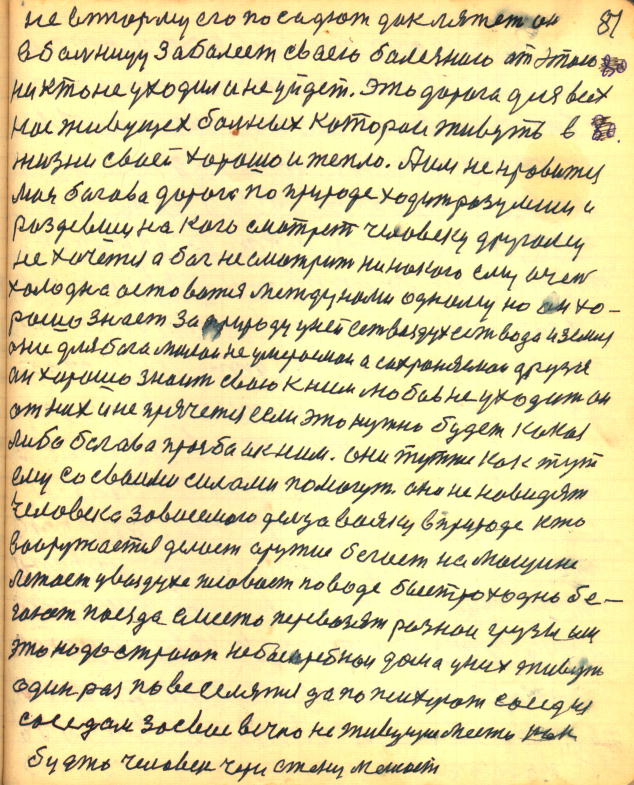 81
не втюрму его посадют докляжет он
в болницу заболеет своею болезнию от этого
никто не уходил и не уйдет. Это дорога для всех
нас живущех болных которои живуть в
жизни своей хорошо и тепло. А им не нравится
моя богава дорога по природе ходит разумши и
раздевши на кого смотрет человеку другому
не хочется а бог не смотрит ни на кого ему очен
холодна остоватя между нами одному но он хо-
рошо знает за природу у ней есть воздух есть вода и земля
они для бога милаи не умераемаи а сохраняемаи друзя
он хорошо знает свою к ним любов не уходит он
от них и не прячется если это нужно будет какая
либо богава прозба и к ним. они тутже как тут
ему со своими силами помогут они не навидят
человека за воемого дельца вояку в природе кто
вооружается делает оружие бегает на машине
летает у воздухе плавает по воде быстроходно бе-
гают поезда с место перевозят разнаи грузы им
это надо строют небоскребнаи дома у них живуть
один раз повеселятся да по психуют соседы
соседам за свое вечно не живущие место как
будто человек чери стену